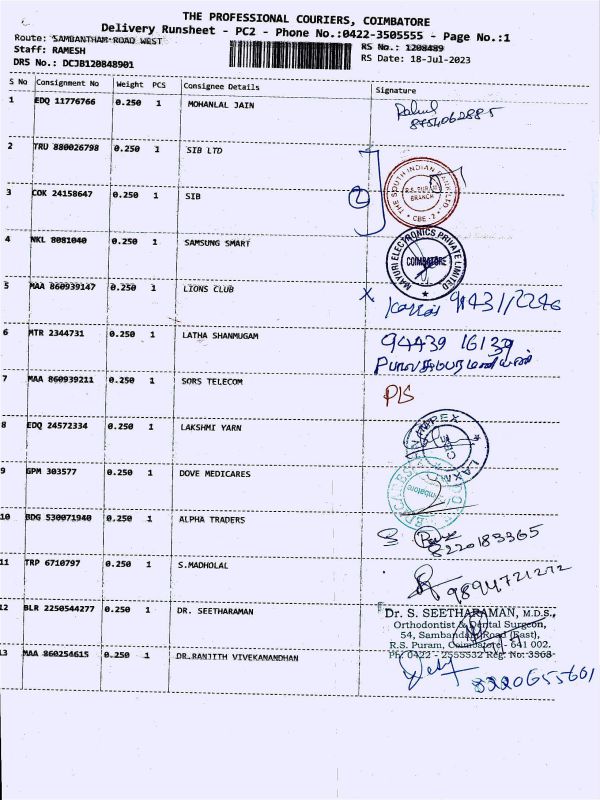 THE PROFESSIONAL COURIERS, COIMBATORE
Delivery Runsheet - PC2 - Phone No.:0422-3505555 - Page No.:1
Route: SAMBANTHAM ROAD WEST
RS No.: 1208489
Staff: RAMESH
RS Date: 18-Jul-2023
DRS No.: DCJB120848901
S No Consignment No Weight PCS Consignee Details Signature
1 EDQ 11776766 0.250 1 MOHANLAL JAIN Rahul
8754062885
2 TRU 880026798 0.250 1 SIB LTD
3 COK 24158647 0.250 1 SIB 2 THE SOUTH INDIAN BANK LTD
R.S. PURAM
BRANCH
CBE - 2
4 NKL 8081040 0.250 1 SAMSUNG SMART MAYURI ELECTRONICS PRIVATE LIMITED
COIMBATORE
5 MAA 860939147 0.250 1 LIONS CLUB X
6 MTR 2344731 0.250 1 LATHA SHANMUGAM 94439 16139
7 MAA 860939211 0.250 1 SORS TELECOM P/S
8 EDQ 24572334 0.250 1 LAKSHMI YARN
9 GPM 303577 0.250 1 DOVE MEDICARES
10 BDG 530071940 0.250 1 ALPHA TRADERS
8220183365
11 TRP 6710797 0.250 1 S.MADHOLAL 9894721272
12 BLR 2250544277 0.250 1 DR. SEETHARAMAN Dr. S. SEETHARAMAN, M.D.S.,
Orthodontist & Dental Surgeon,
54, Sambandam Road (East),
R.S. Puram, Coimbatore - 641 002.
Ph: 0422 - 2555532 Reg. No: 3568
13 MAA 860254615 0.250 1 DR.RANJITH VIVEKANANDHAN
8220655601